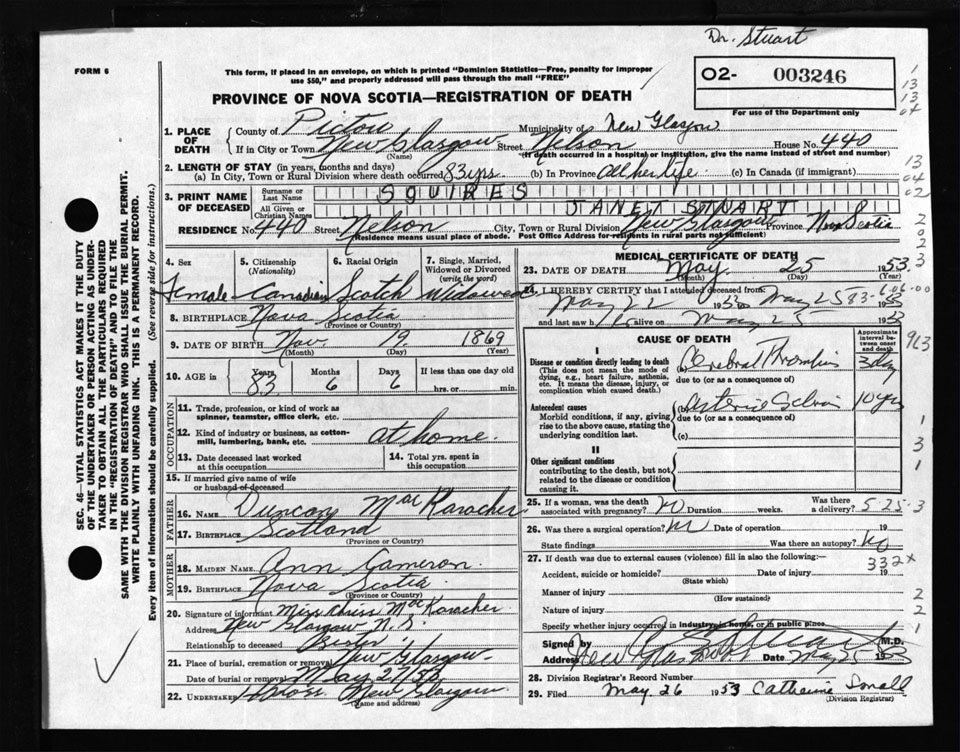 Dr. Stuart
FORM 6
This form, if placed in an envelope, on which is printed "Dominion Statistics—Free, penalty for improper
use $50," and properly addressed will pass through the mail "FREE"
02- 003246
PROVINCE OF NOVA SCOTIA—REGISTRATION OF DEATH
For use of the Department only
1. PLACE OF DEATH
County of Pictou Municipality of New Glasgow
If in City or Town New Glasgow Street Nelson House No. 440
(Name) (If death occurred in a hospital or institution, give the name instead of street and number)
2. LENGTH OF STAY (in years, months and days)
(a) In City, Town or Rural Division where death occurred 83 yrs. (b) In Province All her life (c) In Canada (if immigrant)
3. PRINT NAME OF DECEASED
Surname or Last Name SQUIRES
All Given or Christian Names JANET STUART
RESIDENCE No. 440 Street Nelson City, Town or Rural Division New Glasgow Province Nova Scotia
(Residence means usual place of abode. Post Office Address for residents in rural parts not sufficient)
4. Sex
Female
5. Citizenship
(Nationality)
Canadian
6. Racial Origin
Scotch
7. Single, Married, Widowed or Divorced
(write the word)
Widowed
8. BIRTHPLACE Nova Scotia
(Province or Country)
9. DATE OF BIRTH Nov. 19 1869
(Month) (Day) (Year)
10. AGE in Years Months Days If less than one day old
83 6 6 hrs. or min.
OCCUPATION
11. Trade, profession, or kind of work as
spinner, teamster, office clerk, etc.
12. Kind of industry or business, as cotton-
mill, lumbering, bank, etc. at home.
13. Date deceased last worked
at this occupation
14. Total yrs. spent in
this occupation
15. If married give name of wife
or husband of deceased
FATHER
16. NAME Duncan MacKaracher
17. BIRTHPLACE Scotland
(Province or Country)
MOTHER
18. MAIDEN NAME Ann Cameron
19. BIRTHPLACE Nova Scotia
(Province or Country)
20. Signature of informant Miss Chriss MacKaracher
Address New Glasgow N.S.
Relationship to deceased Sister
21. Place of burial, cremation or removal New Glasgow
Date of burial or removal May 27/53
22. UNDERTAKER New Glasgow
(Name and address)
MEDICAL CERTIFICATE OF DEATH
23. DATE OF DEATH May 25 1953
(Month) (Day) (Year)
24. I HEREBY CERTIFY that I attended deceased from
May 22 1953 to May 25 1953
83- 6.06-00
and last saw her alive on May 25 1953
CAUSE OF DEATH
Approximate interval between onset and death
I
Disease or condition directly leading to death
(This does not mean the mode of
dying, e.g., heart failure, asthenia,
etc. It means the disease, injury, or
complication which caused death.)
(a) Cerebral Thrombosis 3 day
due to (or as a consequence of)
Antecedent causes
Morbid conditions, if any, giving
rise to the above cause, stating the
underlying condition last.
(b) 10 yrs
due to (or as a consequence of)
(c)
II
Other significant conditions
contributing to the death, but not
related to the disease or condition
causing it.
25. If a woman, was the death
associated with pregnancy? No Duration weeks. Was there
a delivery? 5-25-3
26. Was there a surgical operation? No Date of operation 19
State findings Was there an autopsy? No
27. If death was due to external causes (violence) fill in also the following:—
332X
Accident, suicide or homicide? Date of injury 19
(State which)
Manner of injury
(How sustained)
Nature of injury
Specify whether injury occurred in industry, in home, or in public place
Signed by M.D.
Address New Glasgow Date May 25 1953
28. Division Registrar's Record Number
29. Filed May 26 1953 Catherine Small
(Division Registrar)
SEC. 46—VITAL STATISTICS ACT MAKES IT THE DUTY
OF THE UNDERTAKER OR PERSON ACTING AS UNDER-
TAKER TO OBTAIN ALL THE PARTICULARS REQUIRED
IN THE "REGISTRATION OF DEATH" AND TO FILE THE
SAME WITH THE DIVISION REGISTRAR WHO SHALL ISSUE THE BURIAL PERMIT.
WRITE PLAINLY WITH UNFADING INK. THIS IS A PERMANENT RECORD.
Every item of information should be carefully supplied. (See reverse side for instructions.)
1
13
13
04
13
04
02
2
20
2
3
963
1
3
1
2
2
1